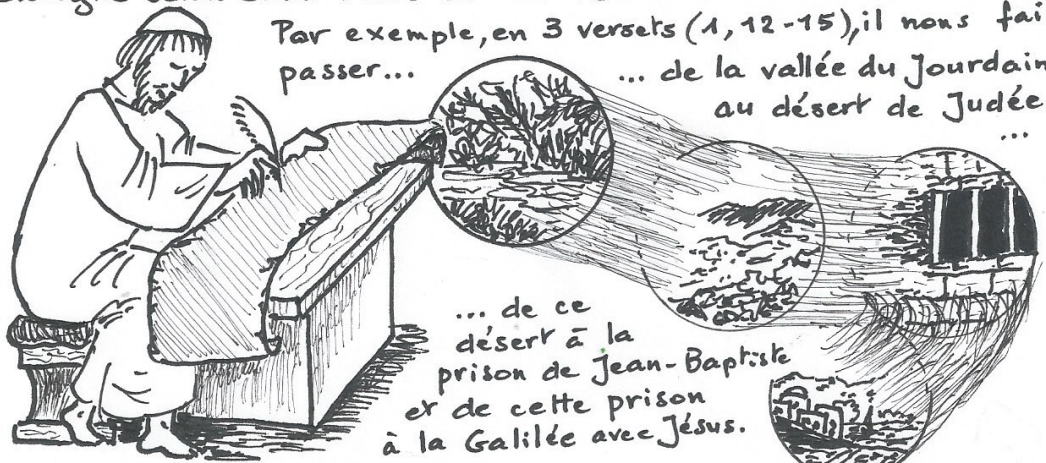 Par exemple, en 3 versets (1, 12-15), il nous fai
passer...
... de la vallée du Jourdain
au désert de Judée
...
... de ce
désert à la
prison de Jean-Baptiste
et de cette prison
à la Galilée avec Jésus.